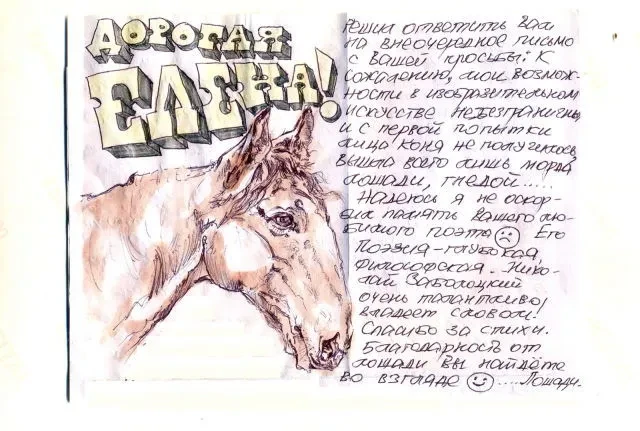 ДОРОГАЯ
ЕЛЕНА!
Решил ответить Вам
на внеочередное письмо
с Вашей просьбы: К
сожалению, мои возмож-
ности в изобразительном
искусстве небезграничны
и с первой попытки
лица коня не получилось,
вышла всего лишь морда
лошади, гнедой.....
Надеюсь я не оскор-
бил память вашего лю-
бимого поэта Его
Поэзия - глубокая,
Философская. Нико-
лай Заболоцкий
очень талантливо
владеет словом!
Спасибо за стихи.
Благодарность от
лошади вы найдёте
во взгляде ..... Лошади.